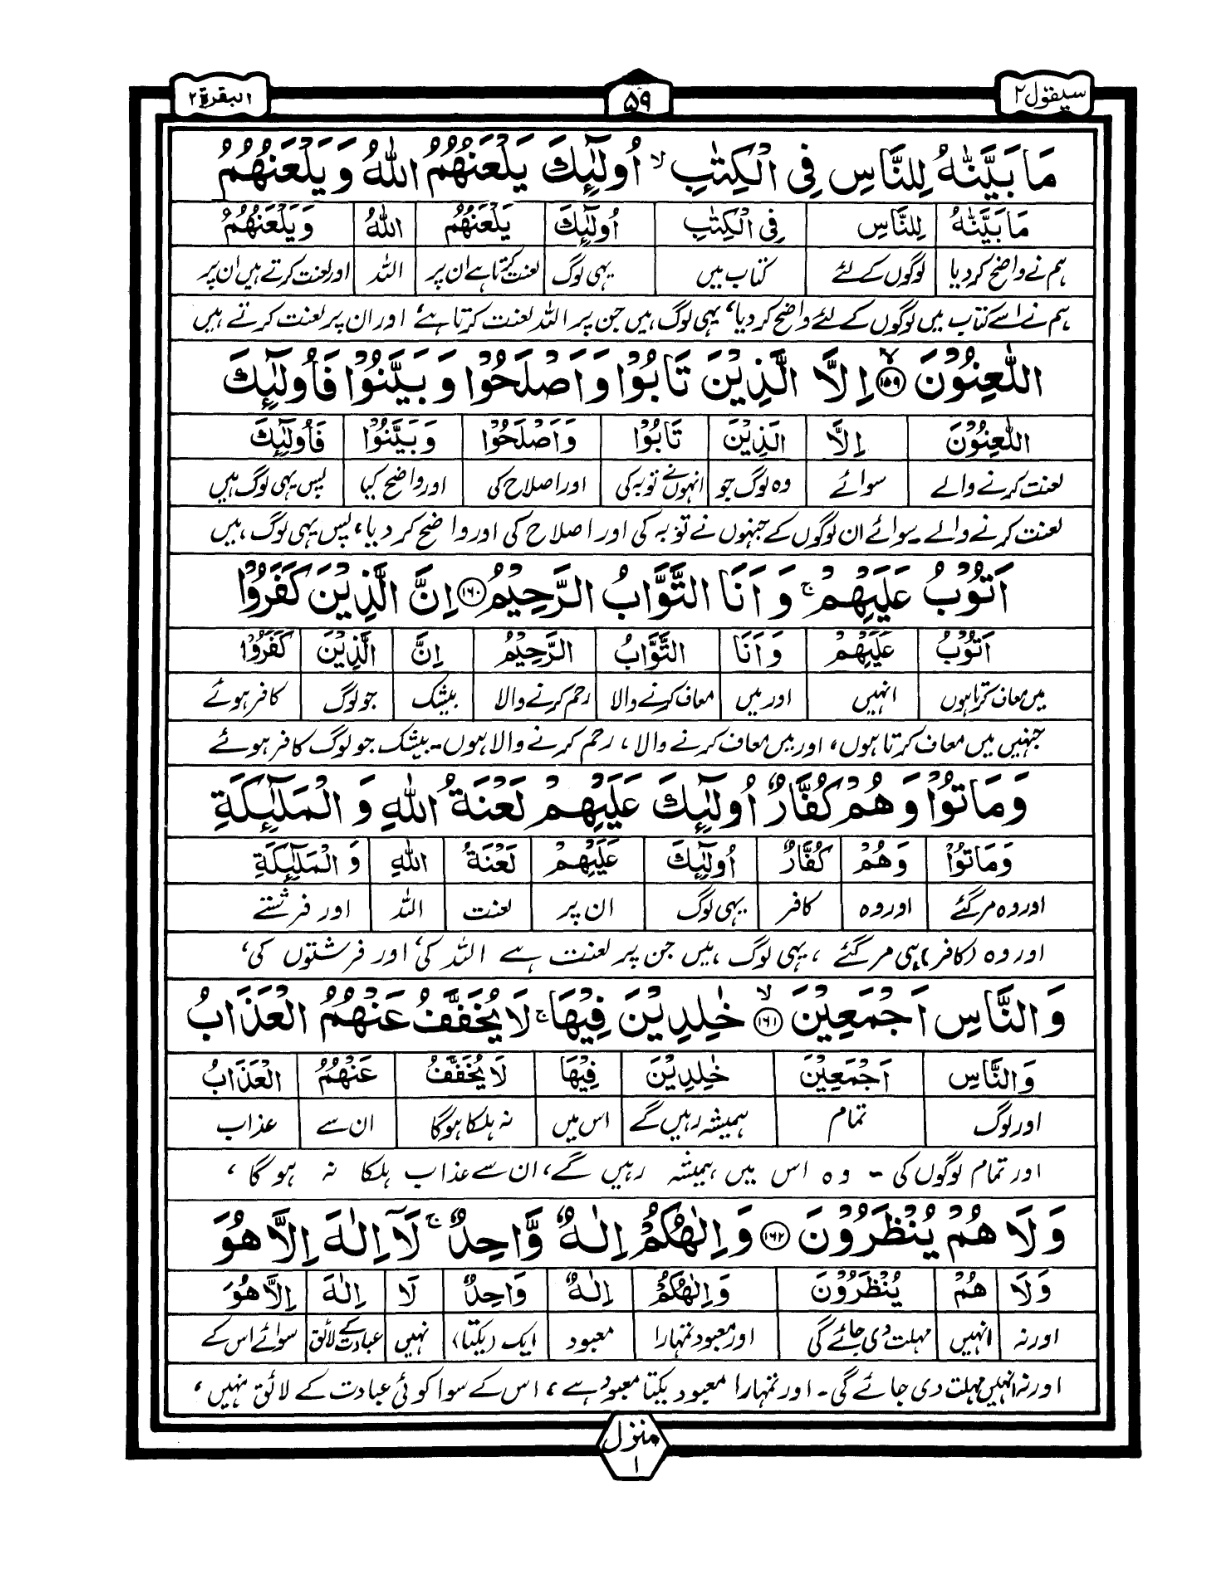 سیقول ۲
۵۹
البقرة ۲
مَا بَيَّنّٰهُ لِلنَّاسِ فِی الْكِتٰبِ ۙ اُولٰٓئِكَ یَلْعَنُهُمُ اللّٰهُ وَ یَلْعَنُهُمُ
مَا بَيَّنّٰهُ لِلنَّاسِ فِی الْكِتٰبِ اُولٰٓئِكَ یَلْعَنُهُمُ اللّٰهُ وَیَلْعَنُهُمُ
ہم نے واضح کردیا لوگوں کے لئے کتاب میں یہی لوگ لعنت کرتا ہے ان پر اللہ اور لعنت کرتے ہیں ان پر
ہم نے اسے کتاب میں لوگوں کے لئے واضح کردیا، یہی لوگ ہیں جن پر اللہ لعنت کرتا ہے اور ان پر لعنت کرتے ہیں
اللّٰعِنُوْنَ ۙ۱۵۹ اِلَّا الَّذِیْنَ تَابُوْا وَ اَصْلَحُوْا وَ بَیَّنُوْا فَاُولٰٓئِكَ
اللّٰعِنُوْنَ اِلَّا الَّذِیْنَ تَابُوْا وَاَصْلَحُوْا وَبَیَّنُوْا فَاُولٰٓئِكَ
لعنت کرنے والے سوائے وہ لوگ جو انہوں نے توبہ کی اور اصلاح کی اور واضح کیا پس یہی لوگ ہیں
لعنت کرنے والے۔ سوائے ان لوگوں کے جنہوں نے توبہ کی اور اصلاح کی اور واضح کردیا، پس یہی لوگ ہیں
اَتُوْبُ عَلَیْهِمْ ۚ وَ اَنَا التَّوَّابُ الرَّحِیْمُ ۱۶۰ اِنَّ الَّذِیْنَ كَفَرُوْا
اَتُوْبُ عَلَیْهِمْ وَاَنَا التَّوَّابُ الرَّحِیْمُ اِنَّ الَّذِیْنَ كَفَرُوْا
میں معاف کرتا ہوں انہیں اور میں معاف کرنے والا رحم کرنے والا بیشک جو لوگ کافر ہوئے
جنہیں میں معاف کرتا ہوں، اور میں معاف کرنے والا، رحم کرنے والا ہوں۔ بیشک جو لوگ کافر ہوئے
وَ مَاتُوْا وَ هُمْ كُفَّارٌ اُولٰٓئِكَ عَلَیْهِمْ لَعْنَةُ اللّٰهِ وَ الْمَلٰٓئِكَةِ
وَمَاتُوْا وَهُمْ كُفَّارٌ اُولٰٓئِكَ عَلَیْهِمْ لَعْنَةُ اللّٰهِ وَ الْمَلٰٓئِكَةِ
اور وہ مر گئے اور وہ کافر یہی لوگ ان پر لعنت اللہ اور فرشتے
اور وہ (کافر) ہی مر گئے، یہی لوگ ہیں جن پر لعنت ہے اللہ کی، اور فرشتوں کی،
وَ النَّاسِ اَجْمَعِیْنَ ۙ۱۶۱ خٰلِدِیْنَ فِیْهَا ۚ لَا یُخَفَّفُ عَنْهُمُ الْعَذَابُ
وَالنَّاسِ اَجْمَعِیْنَ خٰلِدِیْنَ فِیْهَا لَا یُخَفَّفُ عَنْهُمُ الْعَذَابُ
اور لوگ تمام ہمیشہ رہیں گے اس میں نہ ہلکا ہوگا ان سے عذاب
اور تمام لوگوں کی۔ وہ اس میں ہمیشہ رہیں گے، ان سے عذاب ہلکا نہ ہوگا،
وَ لَا هُمْ یُنْظَرُوْنَ ۱۶۲ وَ اِلٰهُكُمْ اِلٰهٌ وَّاحِدٌ ۚ لَاۤ اِلٰهَ اِلَّا هُوَ
وَلَا هُمْ یُنْظَرُوْنَ وَاِلٰهُكُمْ اِلٰهٌ وَاحِدٌ لَا اِلٰهَ اِلَّا هُوَ
اور نہ انہیں مہلت دی جائے گی اور معبود تمہارا معبود ایک (یکتا) نہیں عبادت کے لائق سوائے اس کے
اور نہ انہیں مہلت دی جائے گی۔ اور تمہارا معبود یکتا معبود ہے، اس کے سوا کوئی عبادت کے لائق نہیں،
منزل
۱